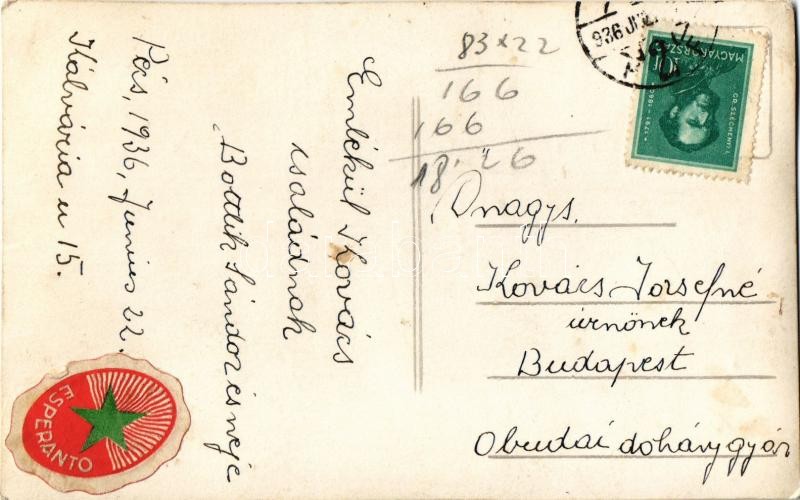 Pécs, 1936, Junius 22.
Kálvária u 15.
Emlékül Kovács
családnak
Bottlik Sándor és neje
83 x 22
166
166
18.26
936 JUN.
MAGYARORSZÁG
10 F
GR. SZÉCHENYI I.
1791-1860
Onagys.
Kovács Jorsefné
úrnőnek
Budapest
Obudai dohánygyár
ESPERANTO